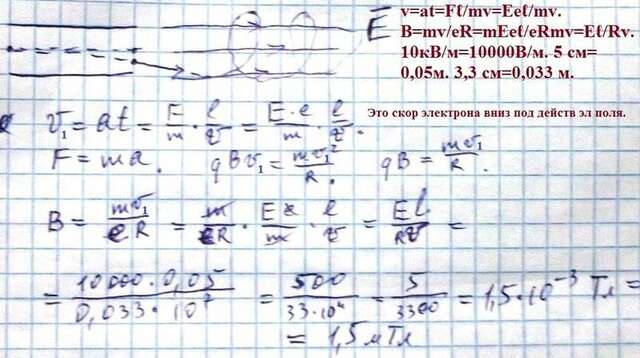 E
v=at=Fℓ/mv=Eeℓ/mv.
B=mv/eR=mEeℓ/eRmv=Eℓ/Rv.
10кВ/м=10000В/м. 5 см=
0,05м. 3,3 см=0,033 м.
Это скор электрона вниз под действ эл поля.
v₁ = at = F/m · l/v = E·e/m · l/v.
F = ma. qBv₁ = mv₁²/R. qB = mv₁/R.
B = mv₁/eR = m/eR · Ee/m · l/v = El/Rv =
= 10000·0,05/0,033·10⁷ = 500/33·10⁴ = 5/3300 = 1,5·10⁻³ Тл =
= 1,5 мТл